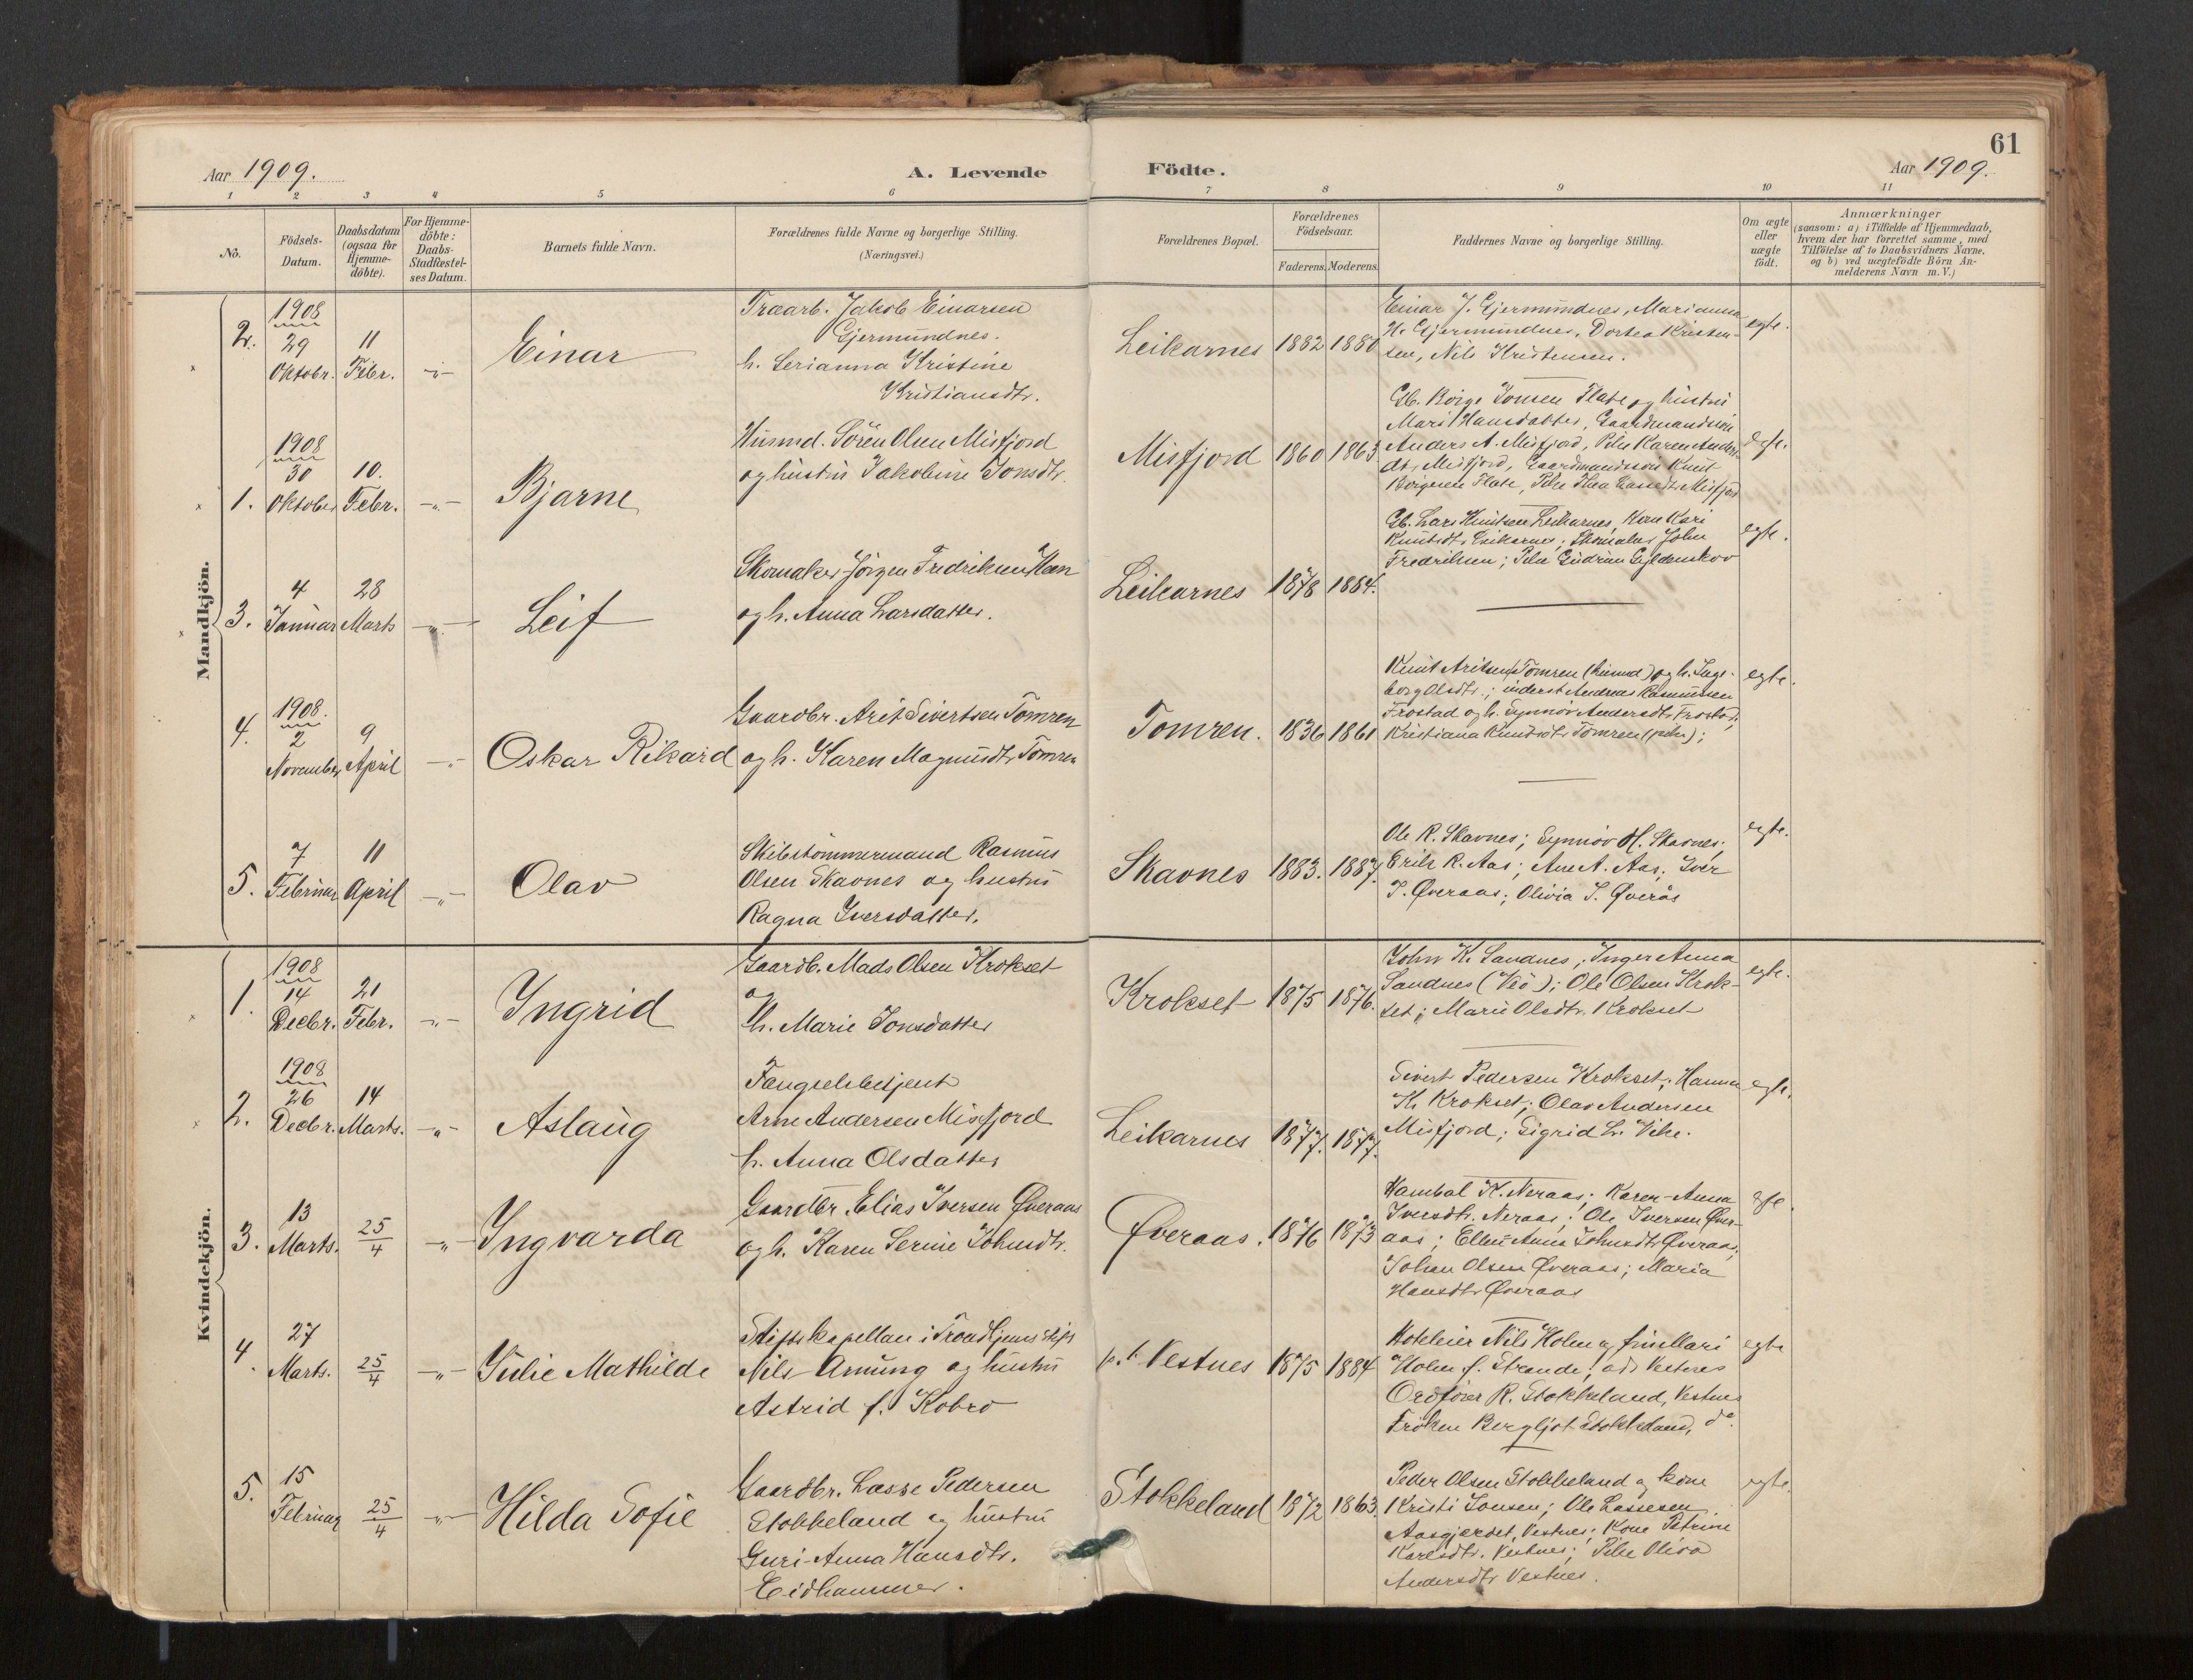 61
Aar 1909.
A. Levende
Födte.
Aar 1909.
1 2 3 4 5 6 7 8 9 10 11
No.
Födsels-
Datum.
Daabsdatum
(ogsaa for
Hjemme-
döbte).
For Hjemme-
döbte:
Daabs-
Stadfæstel-
ses Datum.
Barnets fulde Navn.
Forældrenes fulde Navne og borgerlige Stilling.
(Næringsvei.)
Forældrenes Bopæl.
Forældrenes
Födselsaar.
Faderens. Moderens.
Faddernes Navne og borgerlige Stilling.
Om ægte
eller
uægte
födt.
Anmærkninger
(saasom: a) i Tilfælde af Hjemmedaab,
hvem der har forrettet samme, med
Tilföielse af to Daabsvidners Navne,
og b) ved uægtefödte Börn An-
melderens Navn m. V.)
Mandkjön.
2.
1908
29
Oktobr.
11
Febr.
-"-
Einar
Træarb. Jakob Einarsen
Gjermundnes.
h. Serianna Kristine
Kristiansdtr.
Leikarnes
1882
1880
Einar J. Gjermundnes, Marianna
H. Gjermundnes, Dortea Kristen-
sen, Nils Kristensen.
egte.
1.
1908
30
Oktober
10.
Febr.
-"-
Bjarne
Husmd. Sören Olsen Misfjord
og hustru Jakobine Jonsdtr.
Misfjord
1860
1863
Gb. Börge Jonsen Flate og hustru
Marit Hansdatter, Gaardmandssön
Anders A. Misfjord, Pike Karen Anders-
dt. Misfjord, Gaardmandssön Knut
Börgesen Flate, Pike Thea Lassedtr. Misfjord
egte.
3.
4
Januar
28
Marts
-"-
Leif
Skomaker Jörgen Fredriksen Moen
og h. Anna Larsdatter.
Leikarnes
1878
1884.
Gb. Lars Knutsen Leikarnes, Kone Kari
Knutsdtr. Leikarnes; Skomaker John
Fredriksen; Pike Gudrun Gyldenskov
egte.
4.
1908.
2
November
9
April
-"-
Oskar Rikard
Gaardbr. Arit Sivertsen Tomren
og h. Karen Magnusdtr. Tomren
Tomren.
1836
1861
Knut Aritsen Tomren (husmd) og h. Inge-
borg Olsdtr.; inderst Andreas Rasmussen
Frostad og h. Synnöv Andersdtr. Frostad;
Kristiana Knudsdtr. Tomren (pike);
egte.
5.
7
Februar
11
April
-"-
Olav
Skibstömmermand Rasmus
Olsen Skavnes og hustru
Ragna Iversdatter.
Skavnes
1883.
1887.
Ole R. Skavnes; Synnöv H. Skavnes;
Erik R. Aas; Ane A. Aas; Iver
I. Øveraas; Olivia I. Øverås
egte.
Kvindekjön.
1.
1908
14
Decbr.
21
Febr.
-"-
Yngrid
Gaardb. Mads Olsen Krokset
og
h. Marie Jonsdatter
Krokset
1875
1876.
John K. Sandnes; Inger Anna
Sandnes (Veö); Ole Olsen Krok-
set; Marie Olsdtr. Krokset
egte.
2.
1908
26
Decbr.
14
Marts.
-"-
Aslaug
Fængselsbetjent
Arne Andersen Misfjord
h. Anna Olsdatter
Leikarnes
1877.
1877.
Sivert Pedersen Krokset; Hanna
K. Krokset; Olav Andersen
Misfjord; Sigrid L. Vike.
egte.
3.
13
Marts.
25/4
-"-
Yngvarda
Gaardbr. Elias Iversen Øveraas
og h. Karen Serine Johnsdtr.
Øveraas.
1876
1873
Hanibal K. Neraas; Karen-Anna
Iversdtr. Neraas; Ole Iversen Øver-
aas; Ellen Anna Johnsdtr. Øveraas;
Johan Olsen Øveraas; Maria
Hansdtr. Øveraas
egte.
4.
27
Marts.
25/4
-"-
Julie Mathilde
Stiftskapellan i Trondhjems stift
Nils Amung og hustru
Astrid f. Kobro
p.t. Vestnes
1875
1884
Hoteleier Nils Holen og frue Mari
Holen f. Strande, Vestnes
Ordförer R. Stokkeland, Vestnes
Fröken Bergljot Stokkeland, do.
egte
5.
15
Februar
25/4
-"-
Hilda Sofie
Gaardbr. Lasse Pedersen
Stokkeland og hustru
Guri-Anna Hansdtr.
Eidhammer.
Stokkeland
1872
1863.
Peder Olsen Stokkeland og kone
Kristi Jonsen; Ole Lassesen
Aasgjerdet, Vestnes; Kone Petrine
Karlsdtr. Vestnes; Pike Oliva
Andersdtr. Vestnes.
egte.